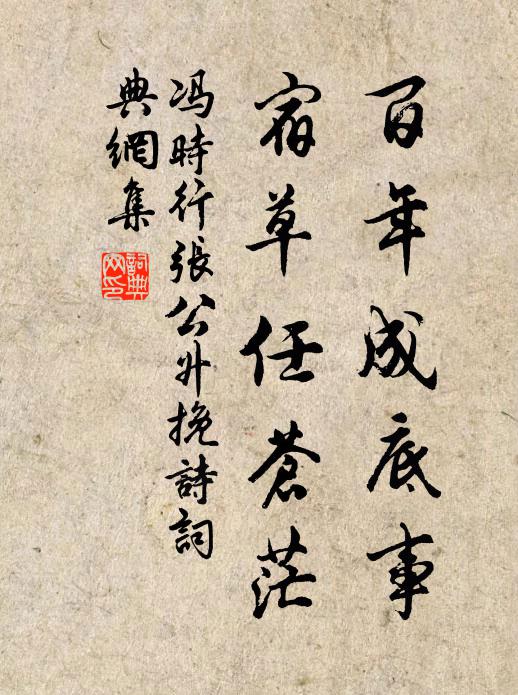 百年成底事
宿草任蒼茫
馮時行張公外挽詩詞
典網集
詞典
网印